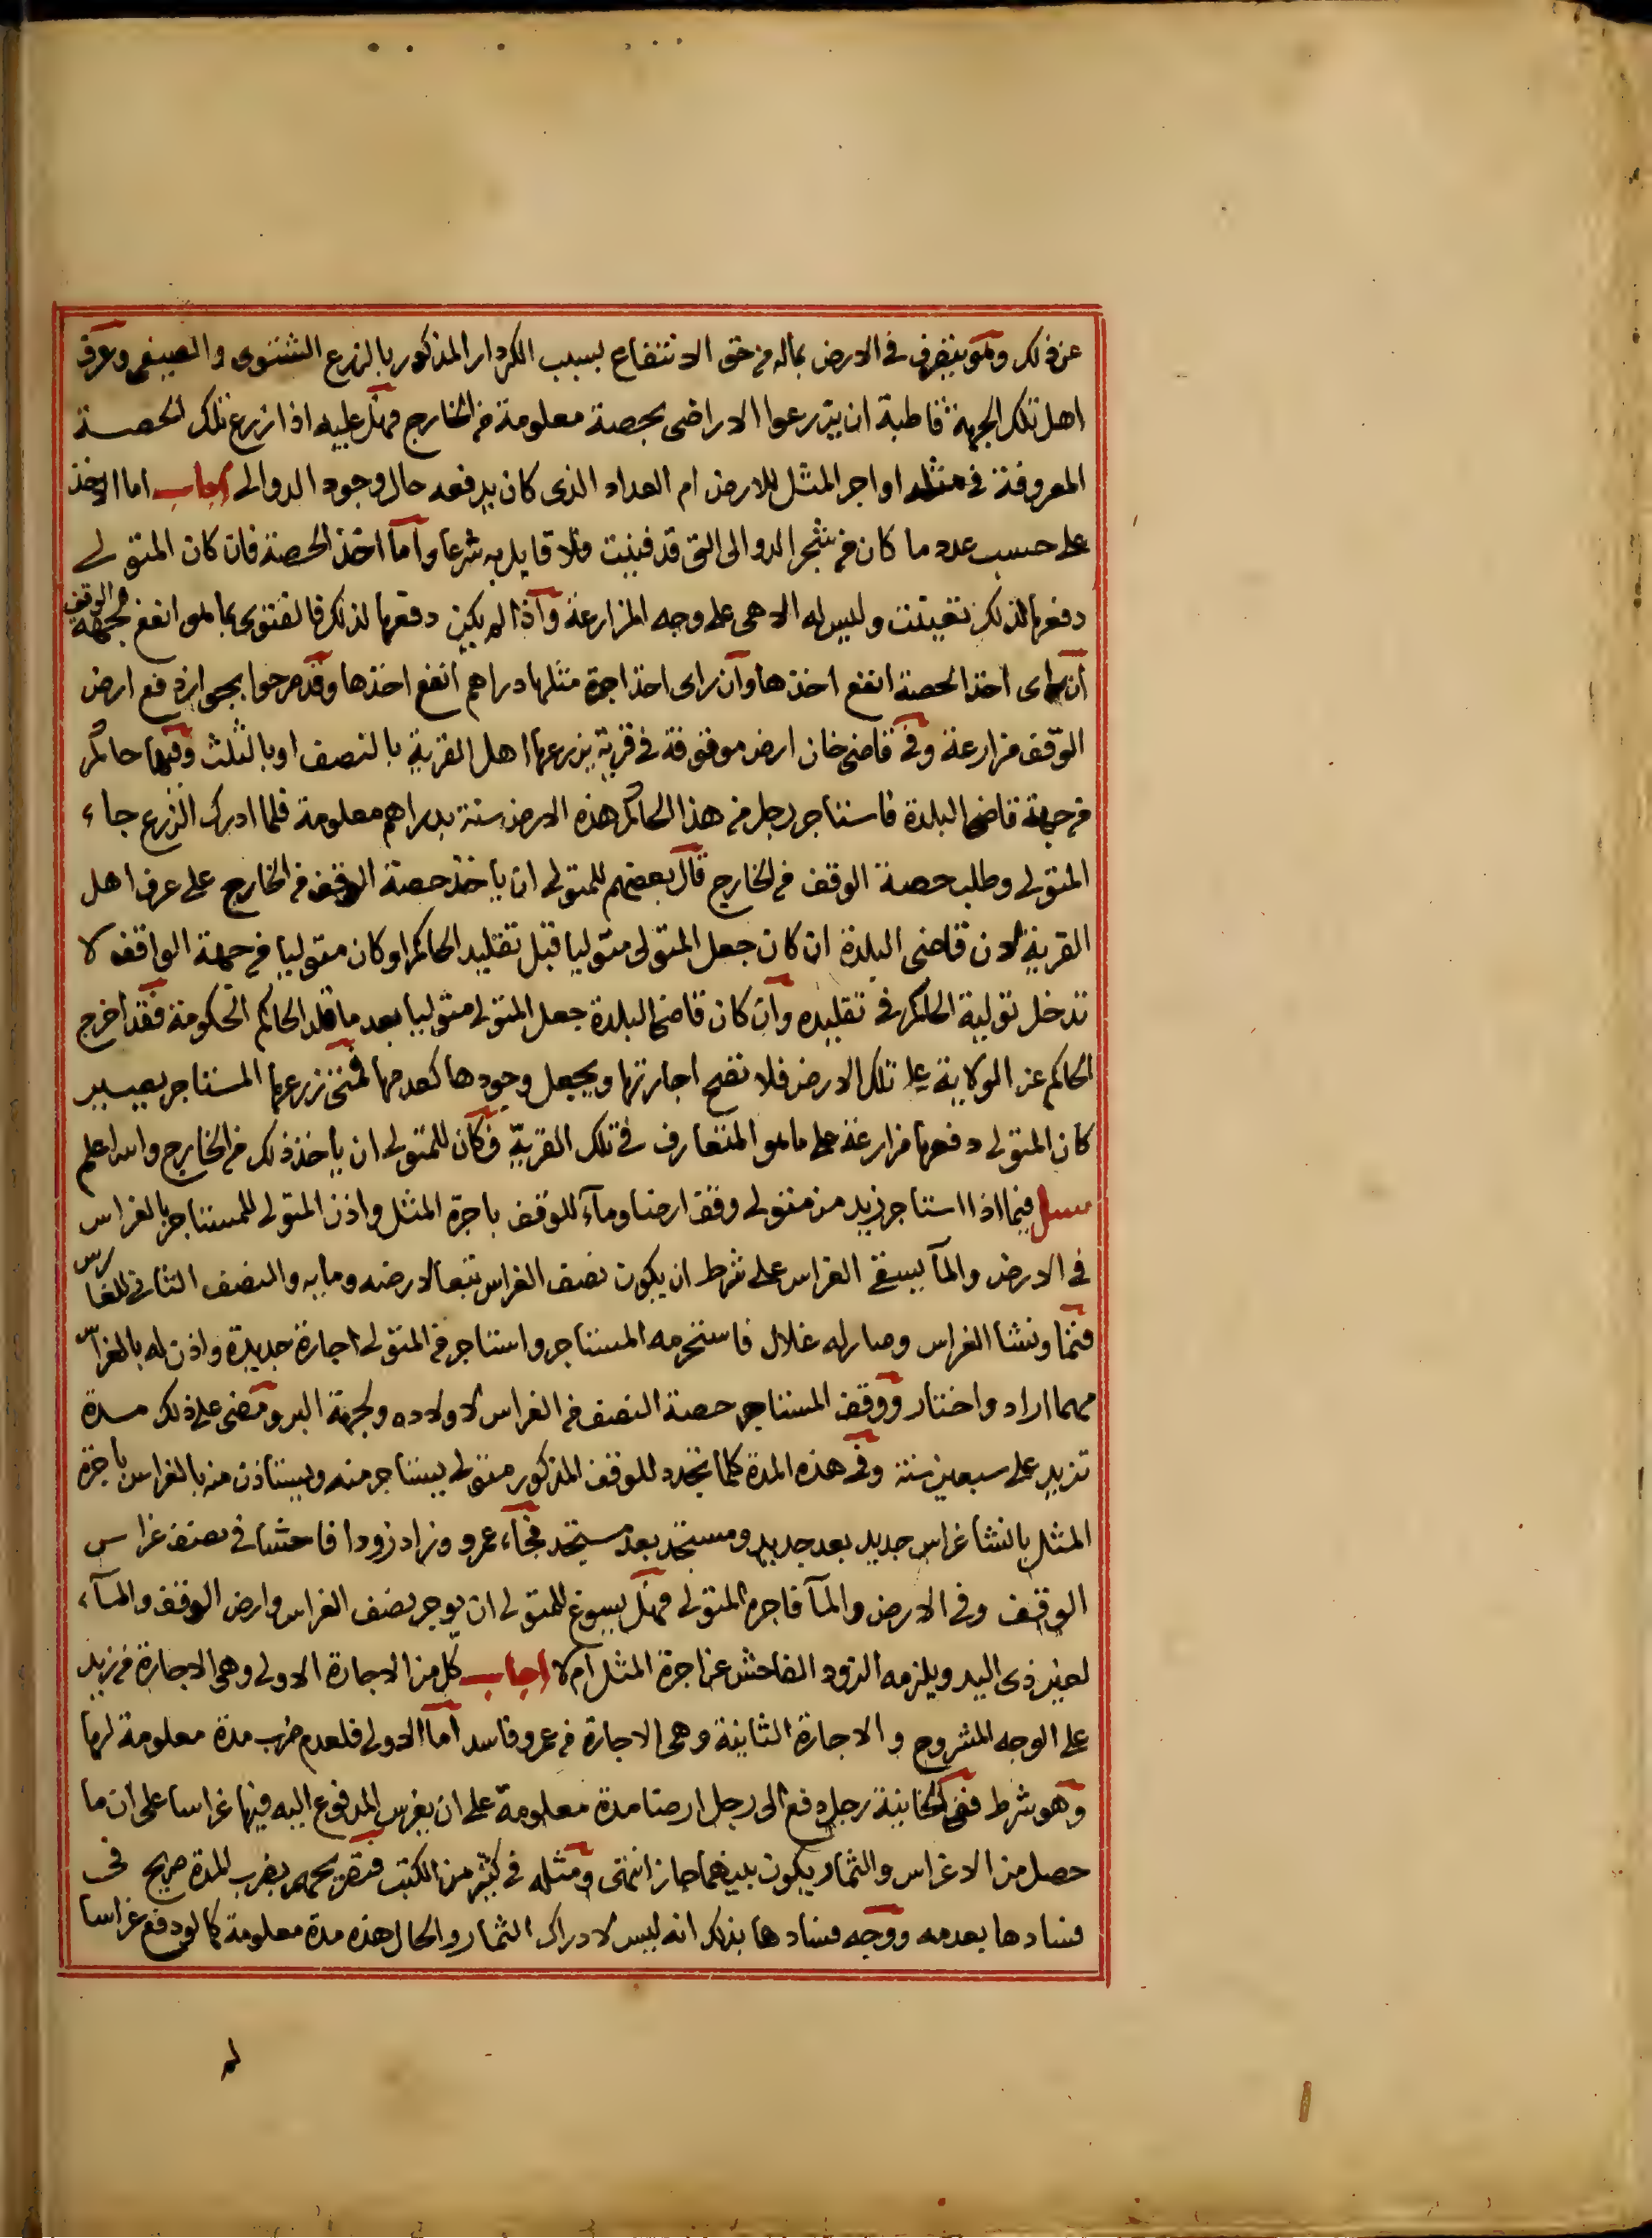 عن ذلك وهو يتصرف في الارض بماله من حق الانتفاع بسبب الكردار المذكور بالزرع الشتوى والصيفى وعرف
اهل تلك الجهة قاطبة ان يزرعوا الاراضى بحصة معلومة من الخارج فهل عليه اذا زرع تلك الحصة
المعروفة في مثله او اجر المثل للارض ام العداد الذى كان يدفعه حال وجود الدوالى اجاب اما الاخذ
على حسب عدد ما كان من شجر الدوالى التى قد فنيت فلا قايل به شرعا واما اخذ الحصة فان كان المتولى
دفعها لذلك تعينت وليس له الا هى على وجه المزارعة واذا لم يكن دفعها لذلك فالفتوى بما هو انفع لجهة الوقف
ان راى اخذ الحصة انفع اخذها وان راى اخذ اجرة مثلها دراهم انفع اخذها وقد صرحوا بجواز دفع ارض
الوقف مزارعة وفي قاضى خان ارض موقوفة في قرية يزرعها اهل القرية بالنصف او بالثلث وفيها حاكم
من جهة قاضى البلدة فاستاجر رجل من هذا الحاكم هذه الارض سنة بدراهم معلومة فلما ادرك الزرع جاء
المتولى وطلب حصة الوقف من الخارج قال بعضهم للمتولى ان ياخذ حصة الوقف من الخارج على عرف اهل
القرية لان قاضى البلدة ان كان جعل المتولى متوليا قبل تقليد الحاكم او كان متوليا من جهة الواقف لا
تدخل تولية الحاكم في تقليده وان كان قاضى البلدة جعل المتولى متوليا بعد ما قلد الحاكم الحكومة فقد اخرج
الحاكم عن الولاية على تلك الارض فلا تصح اجارتها ويجعل وجودها كعدمها فمتى زرعها المستاجر يصير
كان المتولى دفعها مزارعة على ما هو المتعارف في تلك القرية فكان للمتولى ان ياخذ ذلك من الخارج والله اعلم
سئل فيما اذا استاجر زيد من متولى وقف ارضا وماء للوقف باجرة المثل واذن المتولى للمستاجر بالغراس
في الارض والما يسقي الغراس على شرط ان يكون نصف الغراس تبعا لارضه ومايه والنصف الثانى للغارس
فنما ونشا الغراس وصار له غلال فاستحرمه المستاجر واستاجر من المتولى اجارة جديدة واذن له بالغراس
مهما اراد واختار ووقف المستاجر حصة النصف من الغراس لاولاده ولجهة البر ومضى على ذلك مدة
تزيد على سبعين سنة وفي هذه المدة كلما تجدد للوقف المذكور متولى يستاجر منه ويستاذن منه بالغراس باجرة
المثل بانشا غراس جديد بعد جديد ومستجد بعد مستجد فجاء عمرو وزاد زودا فاحشا في نصف غراس
الوقف وفي الارض والما فاجره المتولى فهل يسوغ للمتولى ان يوجر نصف الغراس وارض الوقف والماء
لغير ذى اليد ويلزمه الزود الفاحش عن اجرة المثل ام لا اجاب كل من الاجارة الاولى وهى الاجارة من زيد
على الوجه المشروح والاجارة الثانية وهى الاجارة من عمرو فاسد اما الاولى فلعدم ضرب مدة معلومة لها
وهو شرط ففي الخانية رجل دفع الى رجل ارضا مدة معلومة على ان يغرس المدفوع اليه فيها غراسا على ان ما
حصل من الاغراس والثمار يكون بينهما جاز انتهى ومثله في كثير من الكتب فتصريحهم بضرب المدة صريح في
فسادها بعدمه ووجه فسادها بذلك انه ليس لادراك الثمار والحال هذه مدة معلومة كما لو دفع غراسا
لم